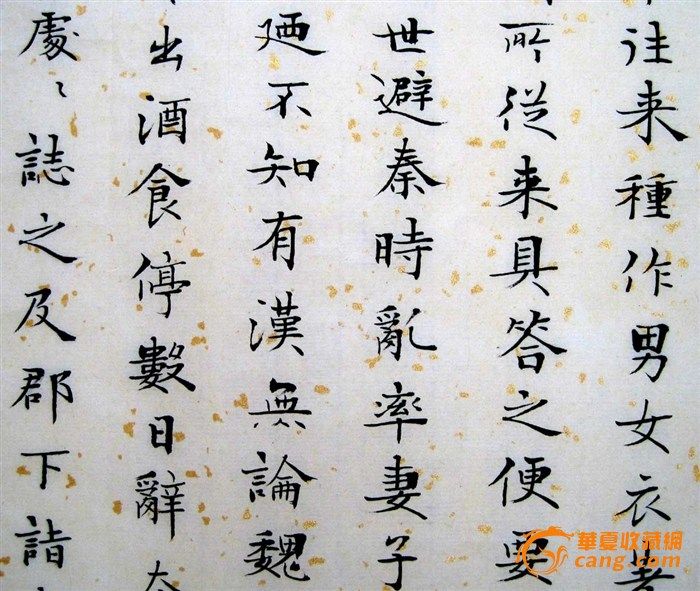 往来種作男女衣著
所従来具答之便要
世避秦時亂率妻子
廼不知有漢無論魏
出酒食停數日辭
處〻誌之及郡下詣
華夏收藏網
cang.com